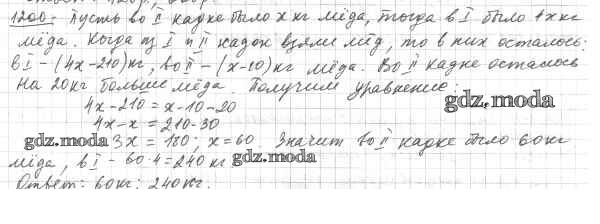 1200. Пусть во II кадке было x кг мёда, тогда в I было 4x кг
мёда. Когда из I и II кадок взяли мёд, то в них осталось:
в I - (4x-210)кг, во II - (x-10)кг мёда. Во II кадке осталось
на 20кг больше мёда. Получим уравнение:
4x-210 = x-10-20
gdz.moda
4x-x = 210-30
gdz.moda
3x = 180; x=60 Значит во II кадке было 60кг
мёда, в I - 60·4=240 кг
gdz.moda
Ответ: 60кг; 240кг.